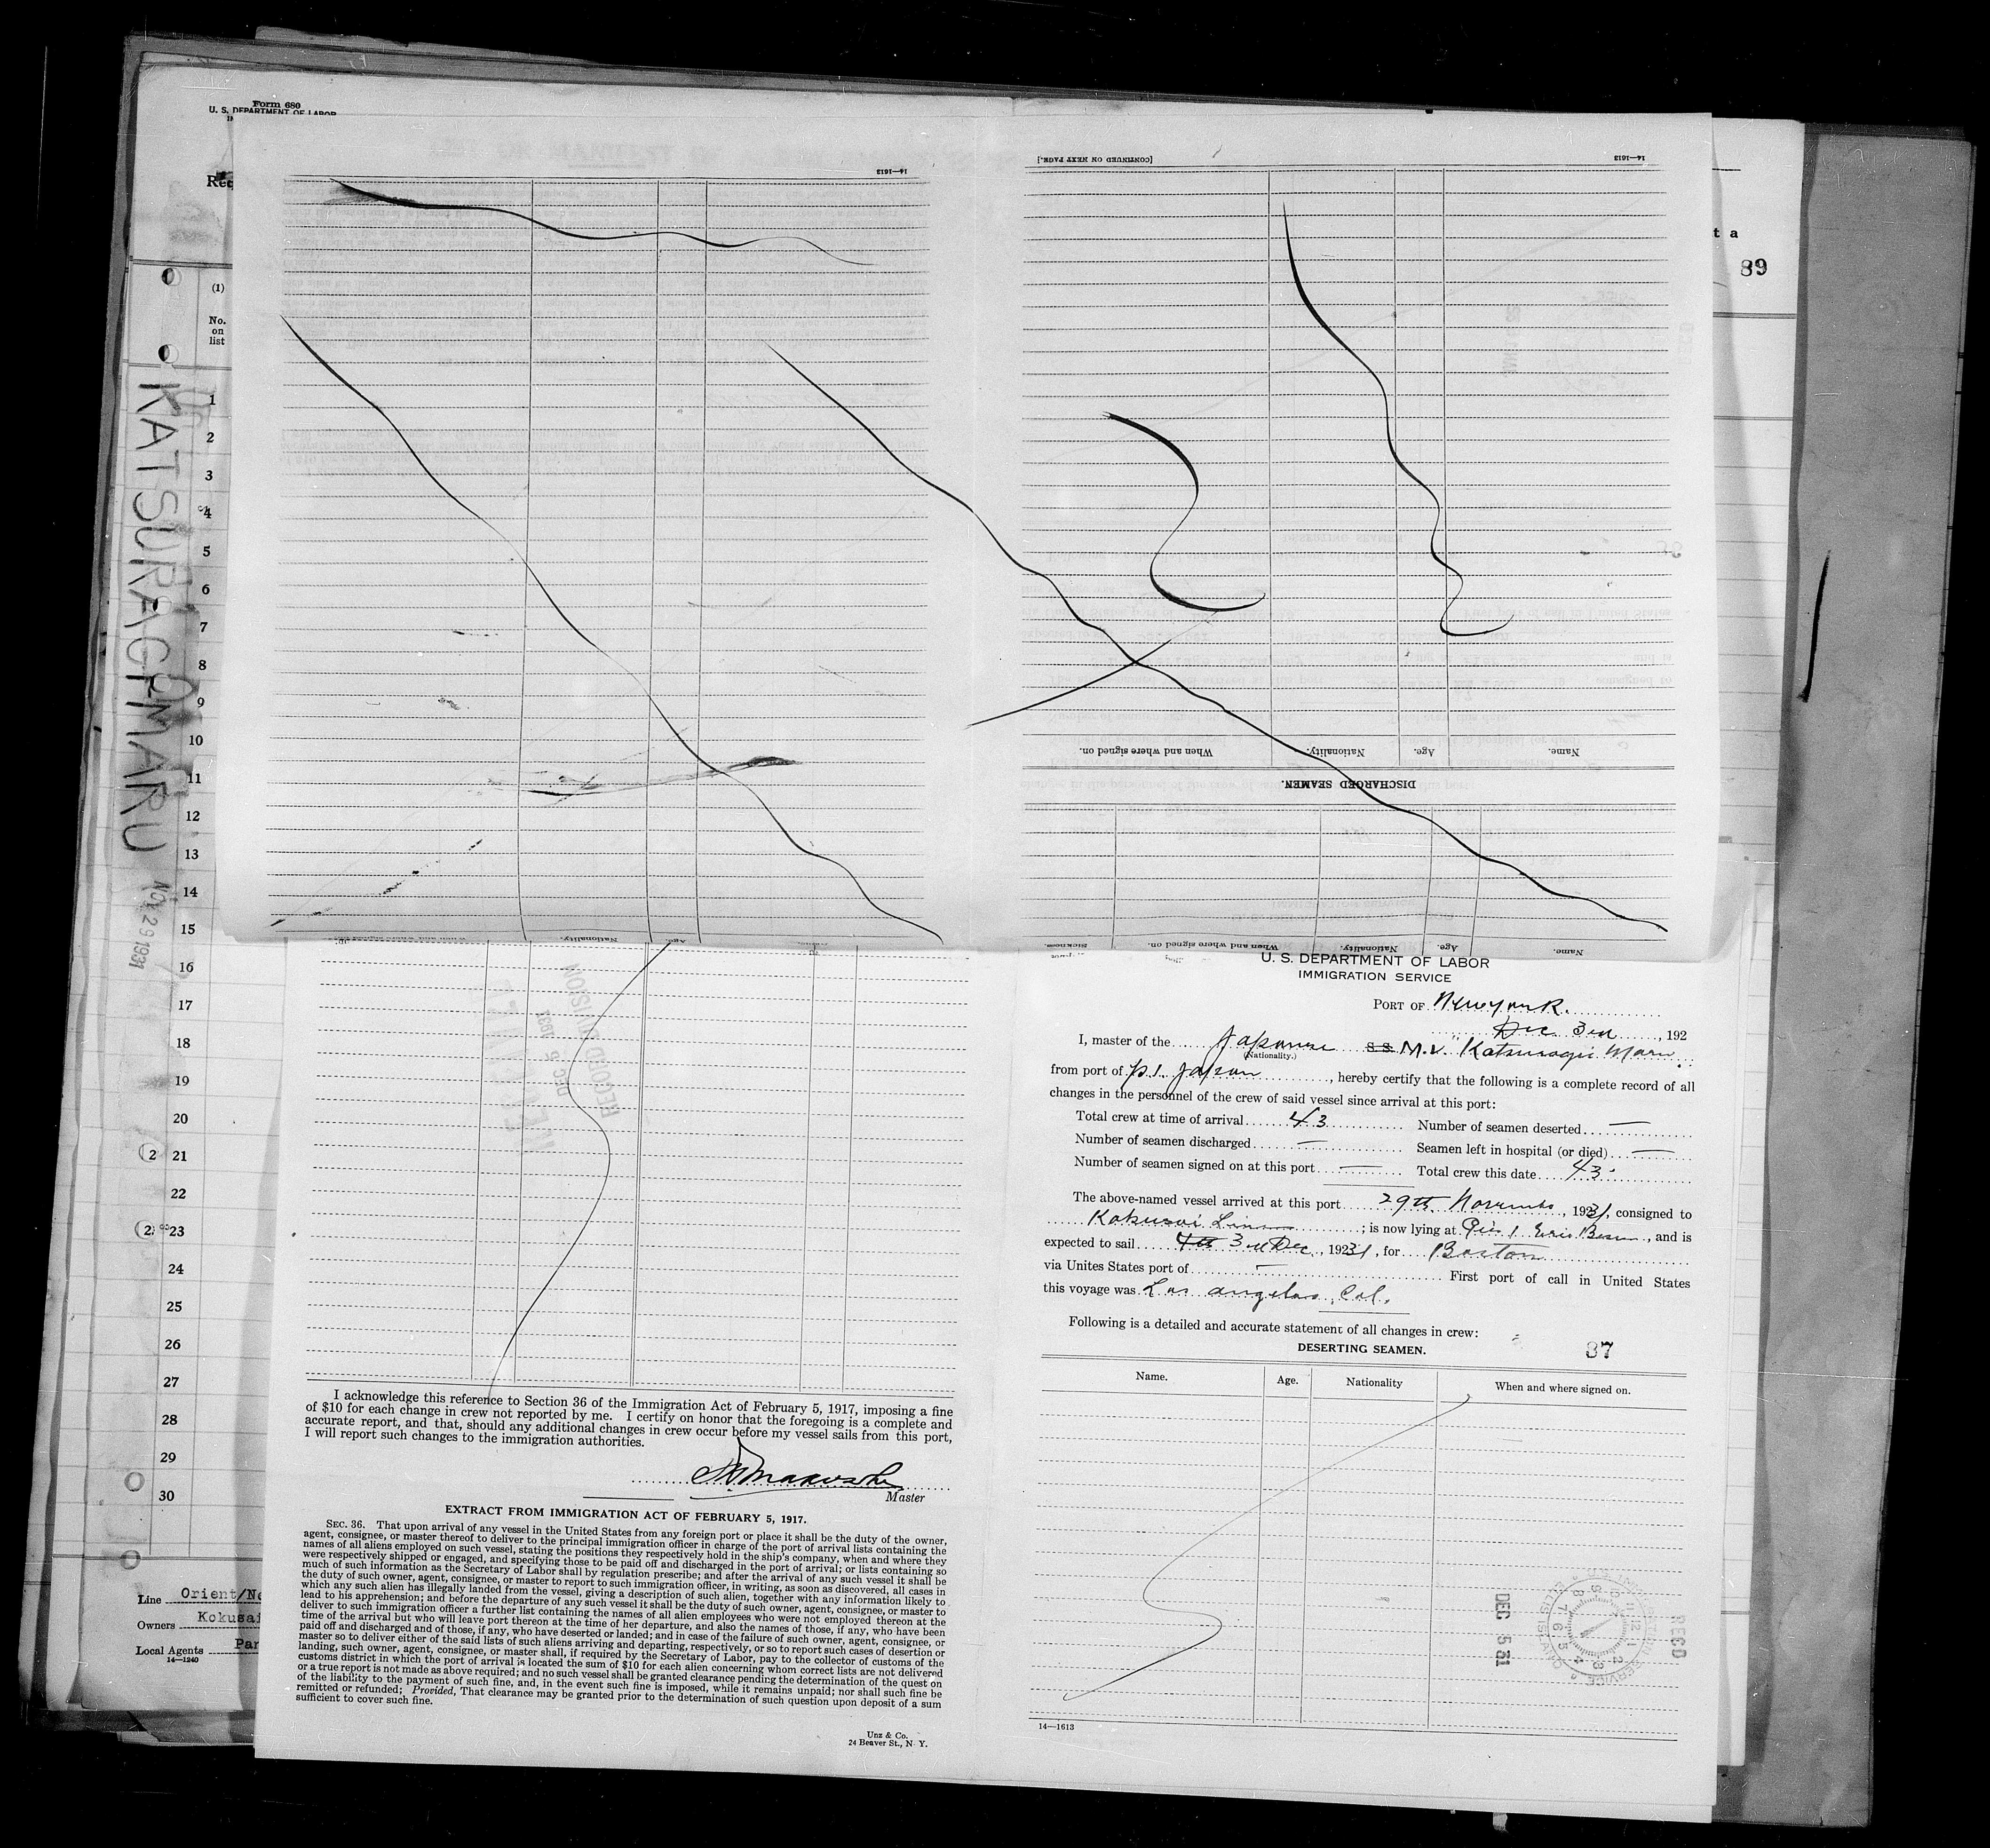 Form 680
U. S. DEPARTMENT OF LABOR
Req
(1)
No.
on
list
1
2
3
4
5
6
7
8
9
10
11
12
13
14
15
16
17
18
19
20
21
22
23
24
25
26
27
28
29
30
KATSURAGI MARU
NOV 29 1931
Line Orient/Ne
Owners Kokusai
Local Agents Par
14—1240
t a
89
14—1613
[CONTINUED ON NEXT PAGE.]
14—1613
Name. Age. Nationality. When and where signed on.
DISCHARGED SEAMEN.
Name. Age. Nationality. When and where signed on. Sickness.
DEC 5 1931
RECORD DIVISION
I acknowledge this reference to Section 36 of the Immigration Act of February 5, 1917, imposing a fine
of $10 for each change in crew not reported by me. I certify on honor that the foregoing is a complete and
accurate report, and that, should any additional changes in crew occur before my vessel sails from this port,
I will report such changes to the immigration authorities.
Master
EXTRACT FROM IMMIGRATION ACT OF FEBRUARY 5, 1917.
SEC. 36. That upon arrival of any vessel in the United States from any foreign port or place it shall be the duty of the owner,
agent, consignee, or master thereof to deliver to the principal immigration officer in charge of the port of arrival lists containing the
names of all aliens employed on such vessel, stating the positions they respectively hold in the ship's company, when and where they
were respectively shipped or engaged, and specifying those to be paid off and discharged in the port of arrival; or lists containing so
much of such information as the Secretary of Labor shall by regulation prescribe; and after the arrival of any such vessel it shall be
the duty of such owner, agent, consignee, or master to report to such immigration officer, in writing, as soon as discovered, all cases in
which any such alien has illegally landed from the vessel, giving a description of such alien, together with any information likely to
lend to his apprehension; and before the departure of any such vessel it shall be the duty of such owner, agent, consignee, or master to
deliver to such immigration officer a further list containing the names of all alien employees who were not employed thereon at the
time of the arrival but who will leave port thereon at the time of her departure, and also the names of those, if any, who have been
paid off and discharged and of those, if any, who have deserted or landed; and in case of the failure of such owner, agent, consignee, or
master so to deliver either of the said lists of such aliens arriving and departing, respectively, or so to report such cases of desertion or
landing, such owner, agent, consignee, or master shall, if required by the Secretary of Labor, pay to the collector of customs of the
customs district in which the port of arrival is located the sum of $10 for each alien concerning whom correct lists are not delivered
or a true report is not made as above required; and no such vessel shall be granted clearance pending the determination of the quest on
of the liability to the payment of such fine, and, in the event such fine is imposed, while it remains unpaid; nor shall such fine be
remitted or refunded; Provided, That clearance may be granted prior to the determination of such question upon deposit of a sum
sufficient to cover such fine.
Unz & Co.
24 Beaver St., N. Y.
U. S. DEPARTMENT OF LABOR
IMMIGRATION SERVICE
PORT OF New York.
Dec 3rd, 192
I, master of the Japanese S S M.V. Katsuragi Maru
(Nationality.)
from port of p.1. Japan, hereby certify that the following is a complete record of all
changes in the personnel of the crew of said vessel since arrival at this port:
Total crew at time of arrival 43 Number of seamen deserted —
Number of seamen discharged — Seamen left in hospital (or died) —
Number of seamen signed on at this port — Total crew this date 43
The above-named vessel arrived at this port 29th November, 1931, consigned to
Kokusai Line; is now lying at Pier 1 Erie Basin, and is
expected to sail 4th 3rd Dec, 1931, for Boston
via Unites States port of — First port of call in United States
this voyage was Los Angeles, Cal.
Following is a detailed and accurate statement of all changes in crew:
87
DESERTING SEAMEN.
Name. Age. Nationality When and where signed on.
REC'D
DEC 5 31
14—1613